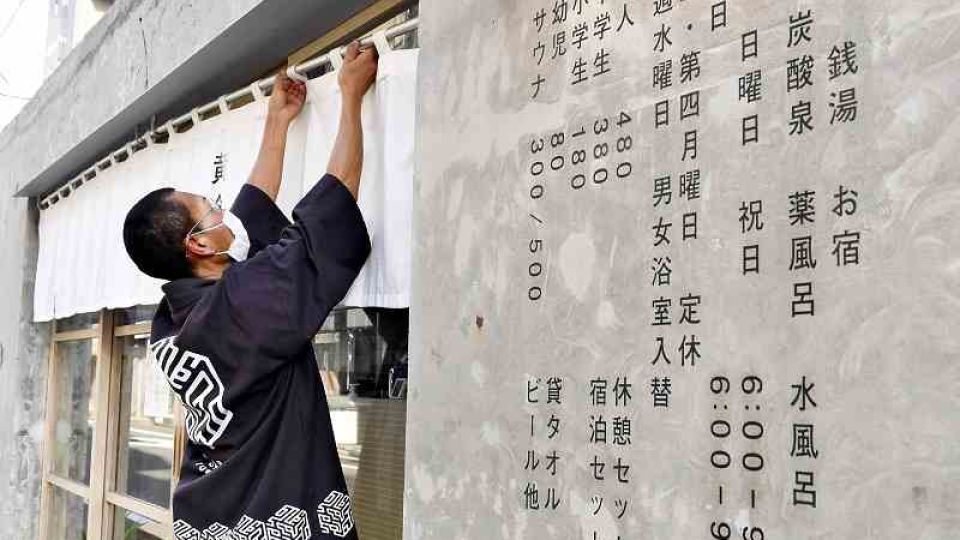 銭湯 お宿
炭酸泉 薬風呂 水風呂
日曜日 祝日 6:00-9
日 6:00-9
・第四月曜日 定休
週水曜日 男女浴室入替
人 480 休憩セット
中学生 380 宿泊セット
小学生 180
幼児 80 貸タオル
サウナ 300/500 ビール他
黄